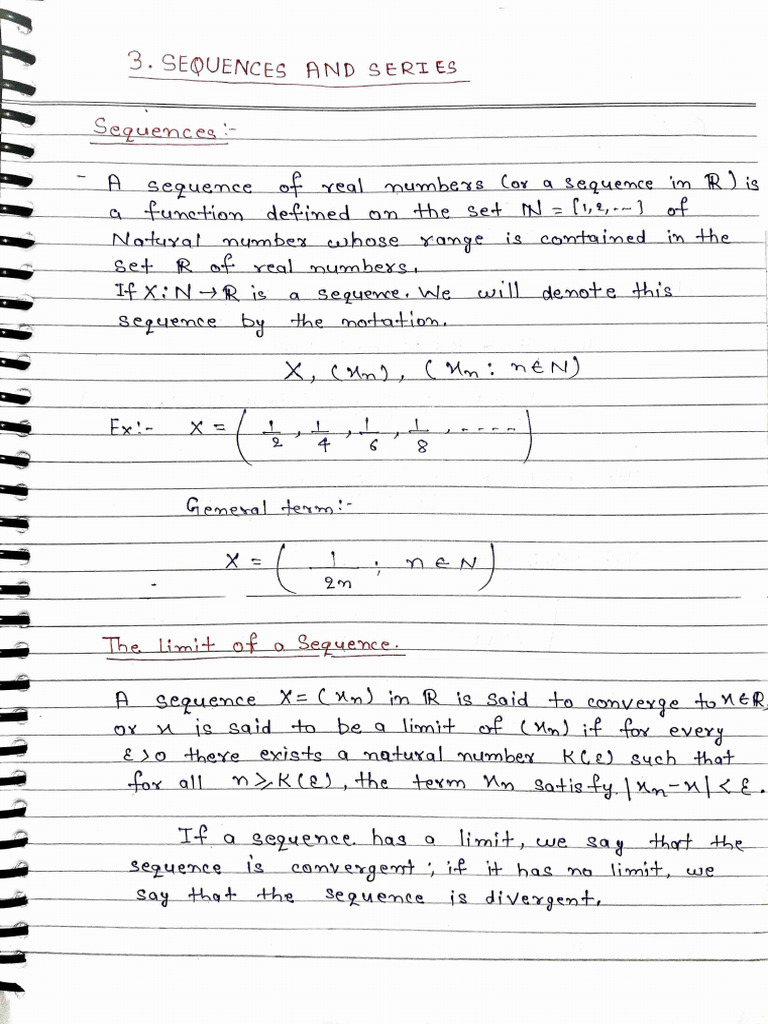 3. SEQUENCES AND SERIES
Sequences:-
- A sequence of real numbers (or a sequence in ℝ) is
a function defined on the set ℕ = {1,2,...} of
Natural number whose range is contained in the
set ℝ of real numbers.
If X: N → ℝ is a sequence. We will denote this
sequence by the notation.
X, (xn), (xn : n ∈ N)
Ex:- X = (1/2, 1/4, 1/6, 1/8, ....-)
General term:-
X = (1/2n ; n ∈ N)
The limit of a Sequence.
A sequence X = (xn) in ℝ is said to converge to x ∈ ℝ,
or x is said to be a limit of (xn) if for every
ε > 0 there exists a natural number K(ε) such that
for all n ⩾ K(ε), the term xn satisfy |xn - x| < ε.
If a sequence has a limit, we say that the
sequence is convergent; if it has no limit, we
say that the sequence is divergent.